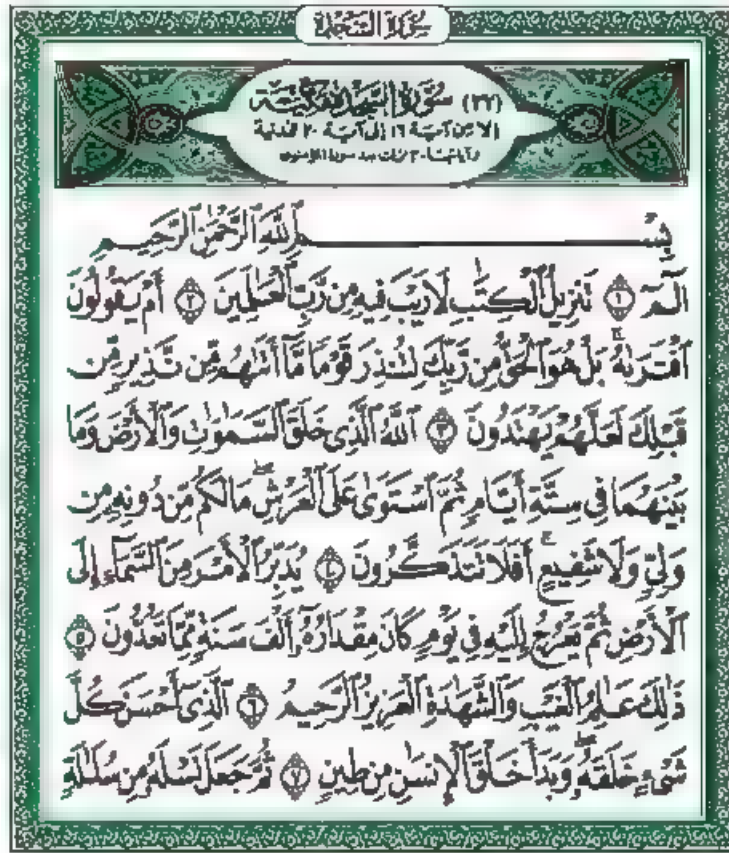 سُورَةُ السَّجْدَةِ
(٣٢) سُورَةُ السَّجْدَةِ مَكِّيَّة
إلا من آية ١٦ إلى آية ٢٠ فمدنية
وآياتها ٣٠ نزلت بعد سورة المؤمنون
بِسْمِ ٱللَّهِ ٱلرَّحْمَٰنِ ٱلرَّحِيمِ
الٓمٓ ۝١ تَنزِيلُ ٱلْكِتَٰبِ لَا رَيْبَ فِيهِ مِن رَّبِّ ٱلْعَٰلَمِينَ ۝٢ أَمْ يَقُولُونَ
ٱفْتَرَىٰهُ ۚ بَلْ هُوَ ٱلْحَقُّ مِن رَّبِّكَ لِتُنذِرَ قَوْمًا مَّآ أَتَىٰهُم مِّن نَّذِيرٍ مِّن
قَبْلِكَ لَعَلَّهُمْ يَهْتَدُونَ ۝٣ ٱللَّهُ ٱلَّذِى خَلَقَ ٱلسَّمَٰوَٰتِ وَٱلْأَرْضَ وَمَا
بَيْنَهُمَا فِى سِتَّةِ أَيَّامٍ ثُمَّ ٱسْتَوَىٰ عَلَى ٱلْعَرْشِ ۖ مَا لَكُم مِّن دُونِهِۦ مِن
وَلِىٍّ وَلَا شَفِيعٍ ۚ أَفَلَا تَتَذَكَّرُونَ ۝٤ يُدَبِّرُ ٱلْأَمْرَ مِنَ ٱلسَّمَآءِ إِلَى
ٱلْأَرْضِ ثُمَّ يَعْرُجُ إِلَيْهِ فِى يَوْمٍ كَانَ مِقْدَارُهُۥٓ أَلْفَ سَنَةٍ مِّمَّا تَعُدُّونَ ۝٥
ذَٰلِكَ عَٰلِمُ ٱلْغَيْبِ وَٱلشَّهَٰدَةِ ٱلْعَزِيزُ ٱلرَّحِيمُ ۝٦ ٱلَّذِىٓ أَحْسَنَ كُلَّ
شَىْءٍ خَلَقَهُۥ ۖ وَبَدَأَ خَلْقَ ٱلْإِنسَٰنِ مِن طِينٍ ۝٧ ثُمَّ جَعَلَ نَسْلَهُۥ مِن سُلَٰلَةٍ